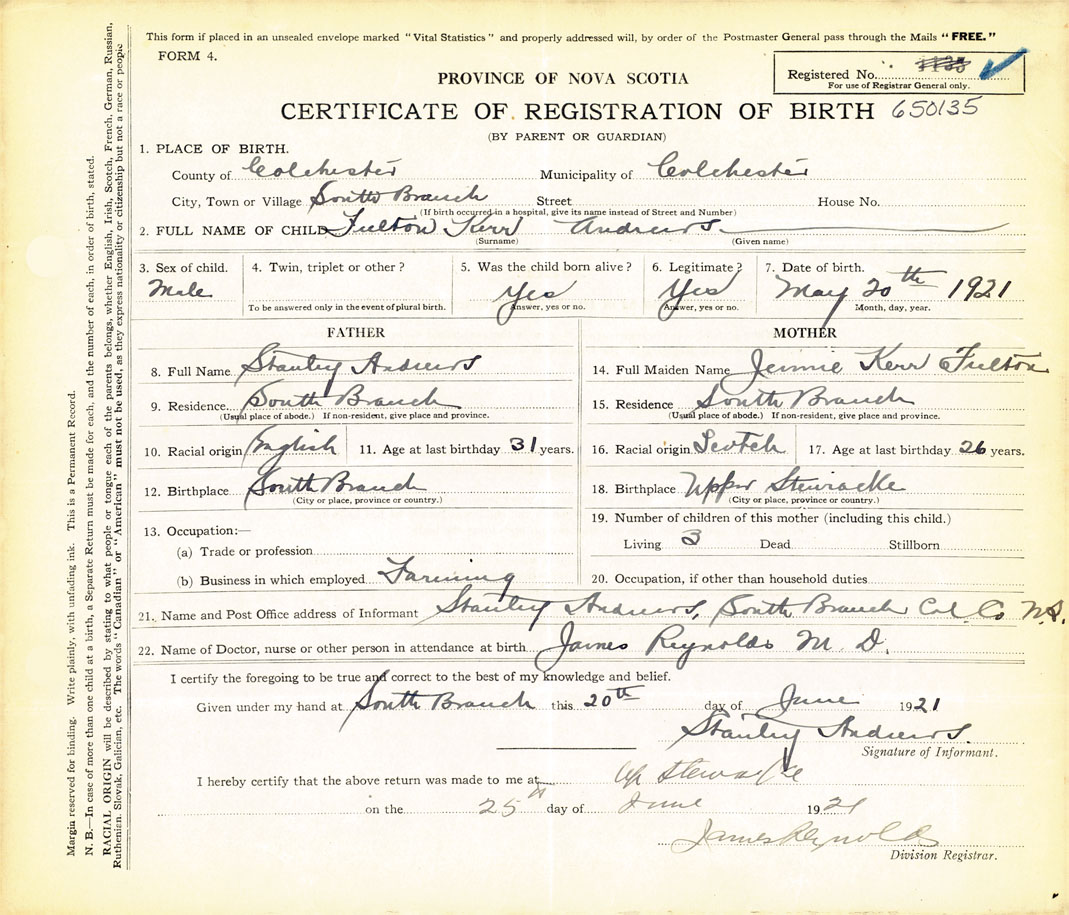 This form if placed in an unsealed envelope marked "Vital Statistics" and properly addressed will, by order of the Postmaster General pass through the Mails "FREE."
FORM 4.
Registered No. 1135
For use of Registrar General only.
PROVINCE OF NOVA SCOTIA
CERTIFICATE OF REGISTRATION OF BIRTH 650135
(BY PARENT OR GUARDIAN)
1. PLACE OF BIRTH.
County of Colchester Municipality of Colchester
City, Town or Village South Branch Street House No.
(If birth occurred in a hospital, give its name instead of Street and Number)
2. FULL NAME OF CHILD Fulton Kerr Andrews
(Surname) (Given name)
3. Sex of child. 4. Twin, triplet or other? 5. Was the child born alive? 6. Legitimate? 7. Date of birth.
Male Yes Yes May 20th 1921
To be answered only in the event of plural birth. Answer, yes or no. Answer, yes or no. Month, day, year.
FATHER
8. Full Name Stanley Andrews
9. Residence South Branch
(Usual place of abode.) If non-resident, give place and province.
10. Racial origin English 11. Age at last birthday 31 years.
12. Birthplace South Branch
(City or place, province or country.)
13. Occupation:—
(a) Trade or profession
(b) Business in which employed Farming
MOTHER
14. Full Maiden Name Jennie Kerr Fulton
15. Residence South Branch
(Usual place of abode.) If non-resident, give place and province.
16. Racial origin Scotch 17. Age at last birthday 26 years.
18. Birthplace Upper Stewiacke
(City or place, province or country.)
19. Number of children of this mother (including this child.)
Living 3 Dead Stillborn
20. Occupation, if other than household duties
21. Name and Post Office address of Informant Stanley Andrews, South Branch Col Co N.S.
22. Name of Doctor, nurse or other person in attendance at birth James Reynolds M. D.
I certify the foregoing to be true and correct to the best of my knowledge and belief.
Given under my hand at South Branch this 20th day of June 1921
Stanley Andrews.
Signature of Informant.
I hereby certify that the above return was made to me at Up Stewiacke
on the 25th day of June 1921
James Reynolds
Division Registrar.
Margin reserved for binding. Write plainly, with unfading ink. This is a Permanent Record.
N. B.—In case of more than one child at a birth, a Separate Return must be made for each, and the number of each, in order of birth, stated.
RACIAL ORIGIN will be described by stating to what people or tongue each of the parents belongs, whether English, Irish, Scotch, French, German, Russian,
Ruthenian. Slovak, Galician, etc. The words "Canadian" or "American" must not be used, as they express nationality or citizenship but not a race or people